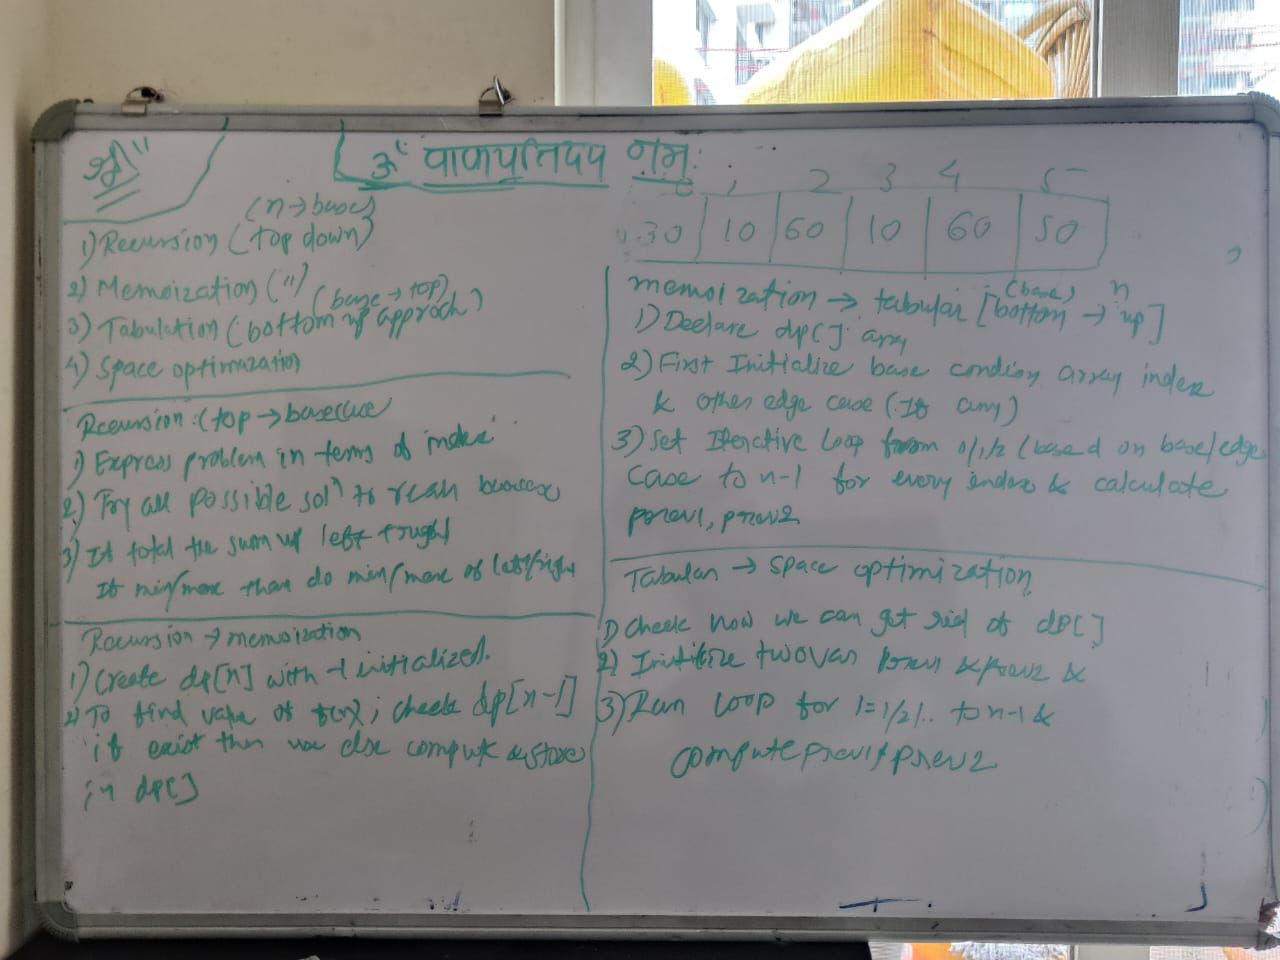 श्री"
ॐ पाणपतिदप नमः
(n→base)
1) Recursion (top down)
2) Memoization (")
(base → top)
3) Tabulation (bottom up approch)
4) Space optimization
Recursion : (top → basecase
1) Express problem in terms of index
2) Try all possible solⁿ to reach basecase
3) If total the sum of left + right
If min/max than do min/max of left/right
Recursion → memoization
1) Create dp[n] with -1 initialized.
2) To find value of f(n), check dp[n-1]
if exist then use else compute & store
in dp[]
0 1 2 3 4 5
30 10 60 10 60 50
(base) n
memoization → tabular [bottom → up]
1) Declare dp[] array
2) First Initialize base condion array index
& other edge case (If any)
3) Set Iterctive Loop from 0/1/2 (based on base/edge
case to n-1 for every index & calculate
prev1, prev2
Tabular → space optimization
1) Check how we can get rid of dp[]
2) Initilize two var prev1 & prev2 &
3) Run Loop for i=1/2/.. to n-1 &
compute prev1 & prev2